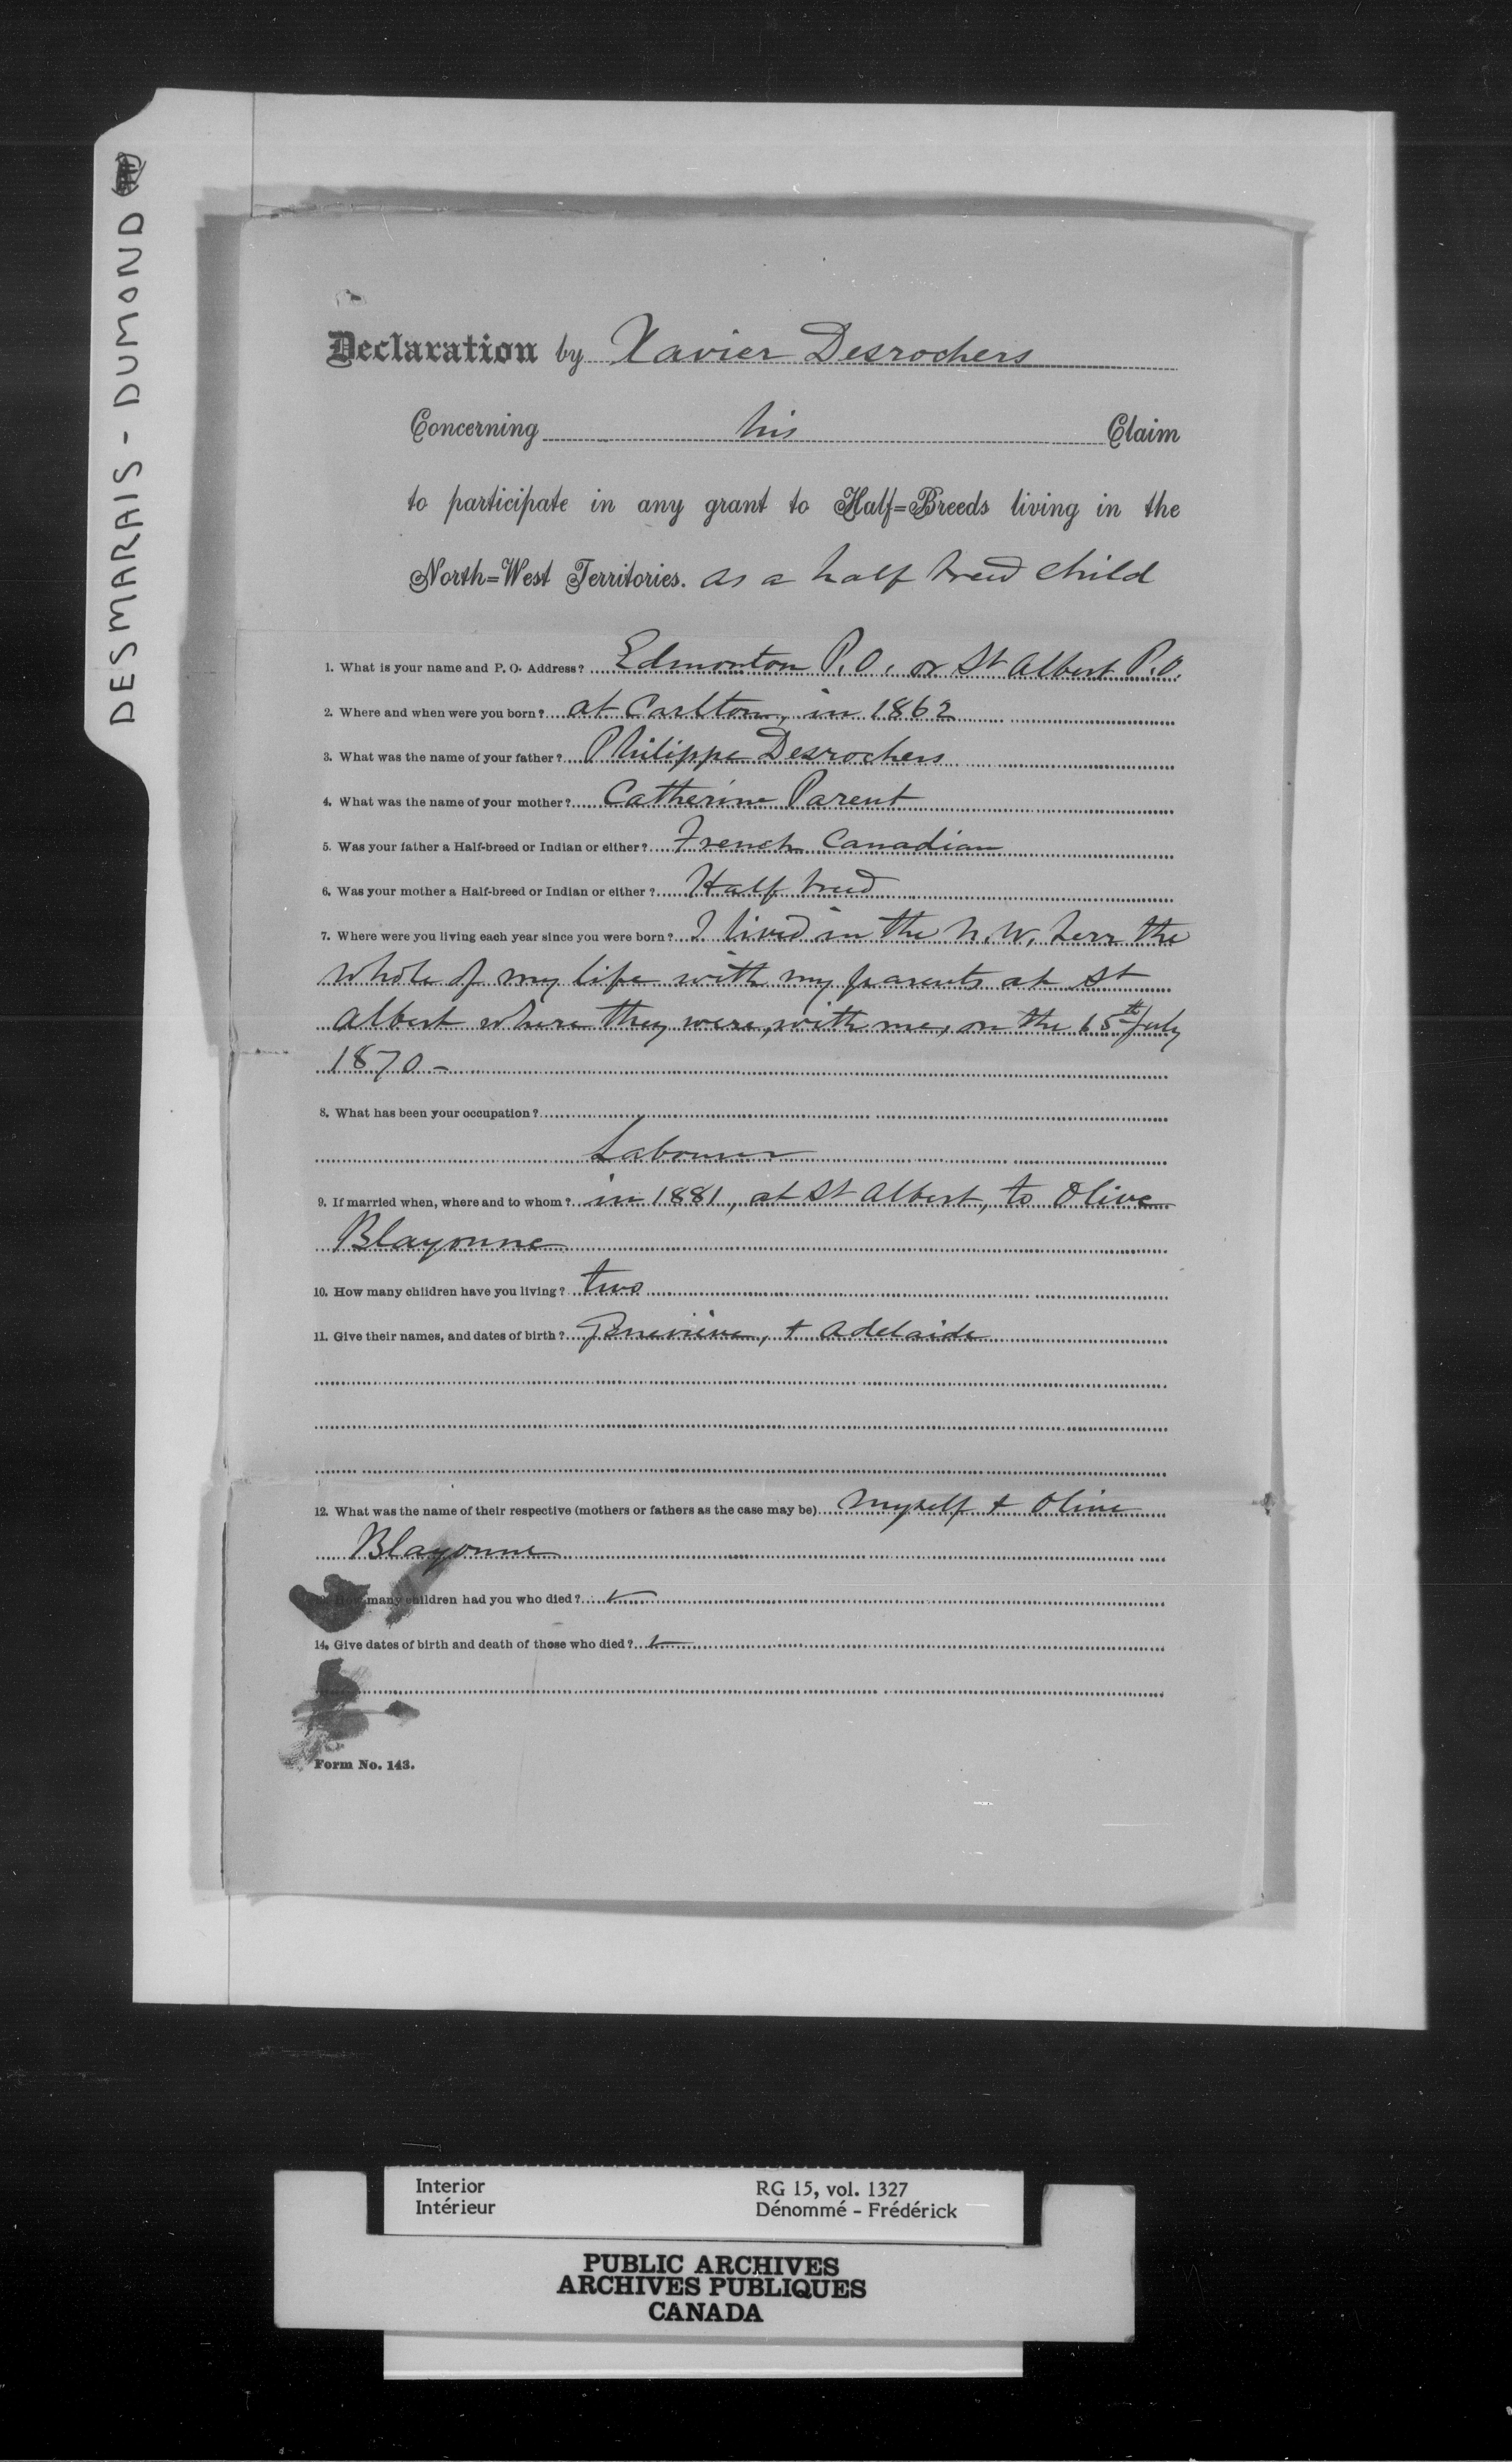 DESMARAIS - DUMOND
Declaration by Xavier Desrochers
Concerning his Claim
to participate in any grant to Half=Breeds living in the
North=West Territories. as a half breed child
1. What is your name and P. O. Address? Edmonton P.O. or St Albert P.O.
2. Where and when were you born? at Carlton, in 1862
3. What was the name of your father? Philippe Desrochers
4. What was the name of your mother? Catherine Parent
5. Was your father a Half-breed or Indian or either? French Canadian
6. Was your mother a Half-breed or Indian or either? Half breed
7. Where were you living each year since you were born? I lived in the N. W. Terr the
whole of my life with my parents at St
Albert where they were, with me, on the 15th July
1870 -
8. What has been your occupation?
Labourer
9. If married when, where and to whom? in 1881, at St Albert, to Olive
Blayonne
10. How many children have you living? two
11. Give their names, and dates of birth? Genevieve, + Adelaide
12. What was the name of their respective (mothers or fathers as the case may be) Myself + Olive
Blayonne
How many children had you who died?
14. Give dates of birth and death of those who died?
Form No. 143.
Interior RG 15, vol. 1327
Intérieur Dénommé - Frédérick
PUBLIC ARCHIVES
ARCHIVES PUBLIQUES
CANADA